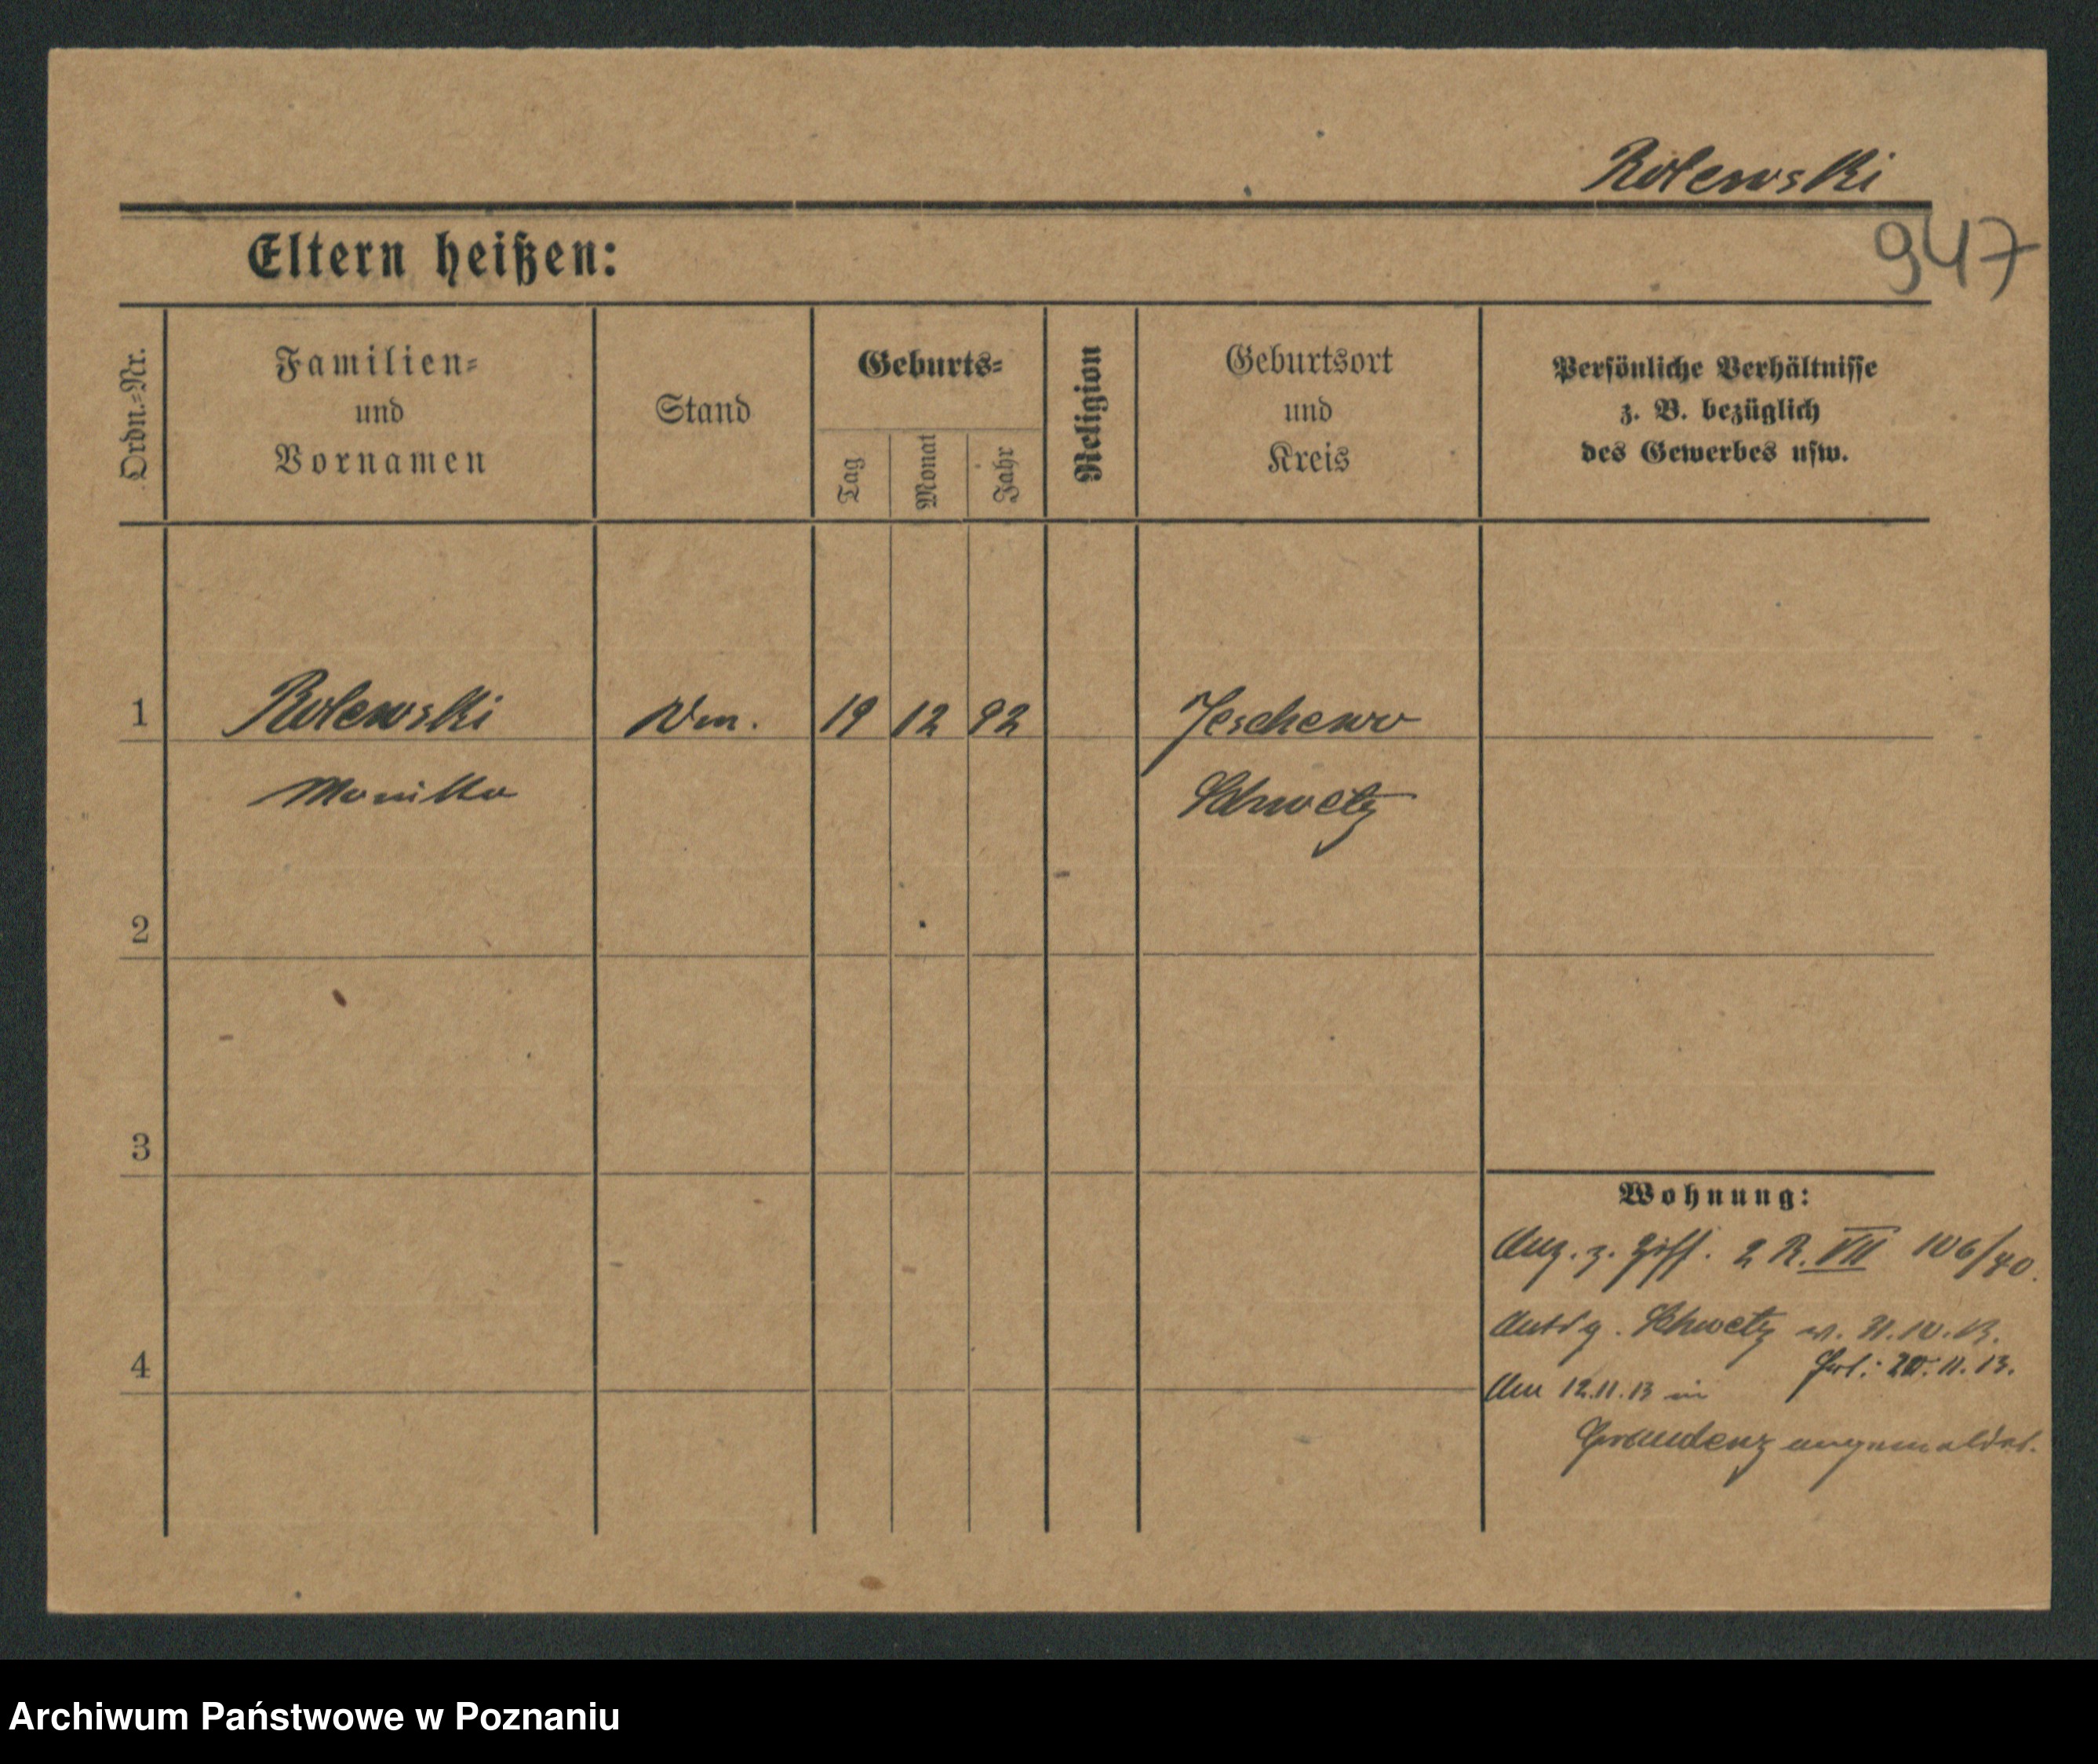 Rolewski
947
Eltern heißen:
Ordn.-Nr.
Familien-
und
Vornamen
Stand
Geburts-
Tag
Monat
Jahr
Religion
Geburtsort
und
Kreis
Persönliche Verhältnisse
z. B. bezüglich
des Gewerbes usw.
1
Rolewski
19
12
92
Jeschewo
Monika
Schwetz
2
3
Wohnung:
z. Ziff. 2 R. VII 106/40.
Schwetz
4
11.13.
12.11.13 in
Graudenz angemeldet.
Archiwum Państwowe w Poznaniu